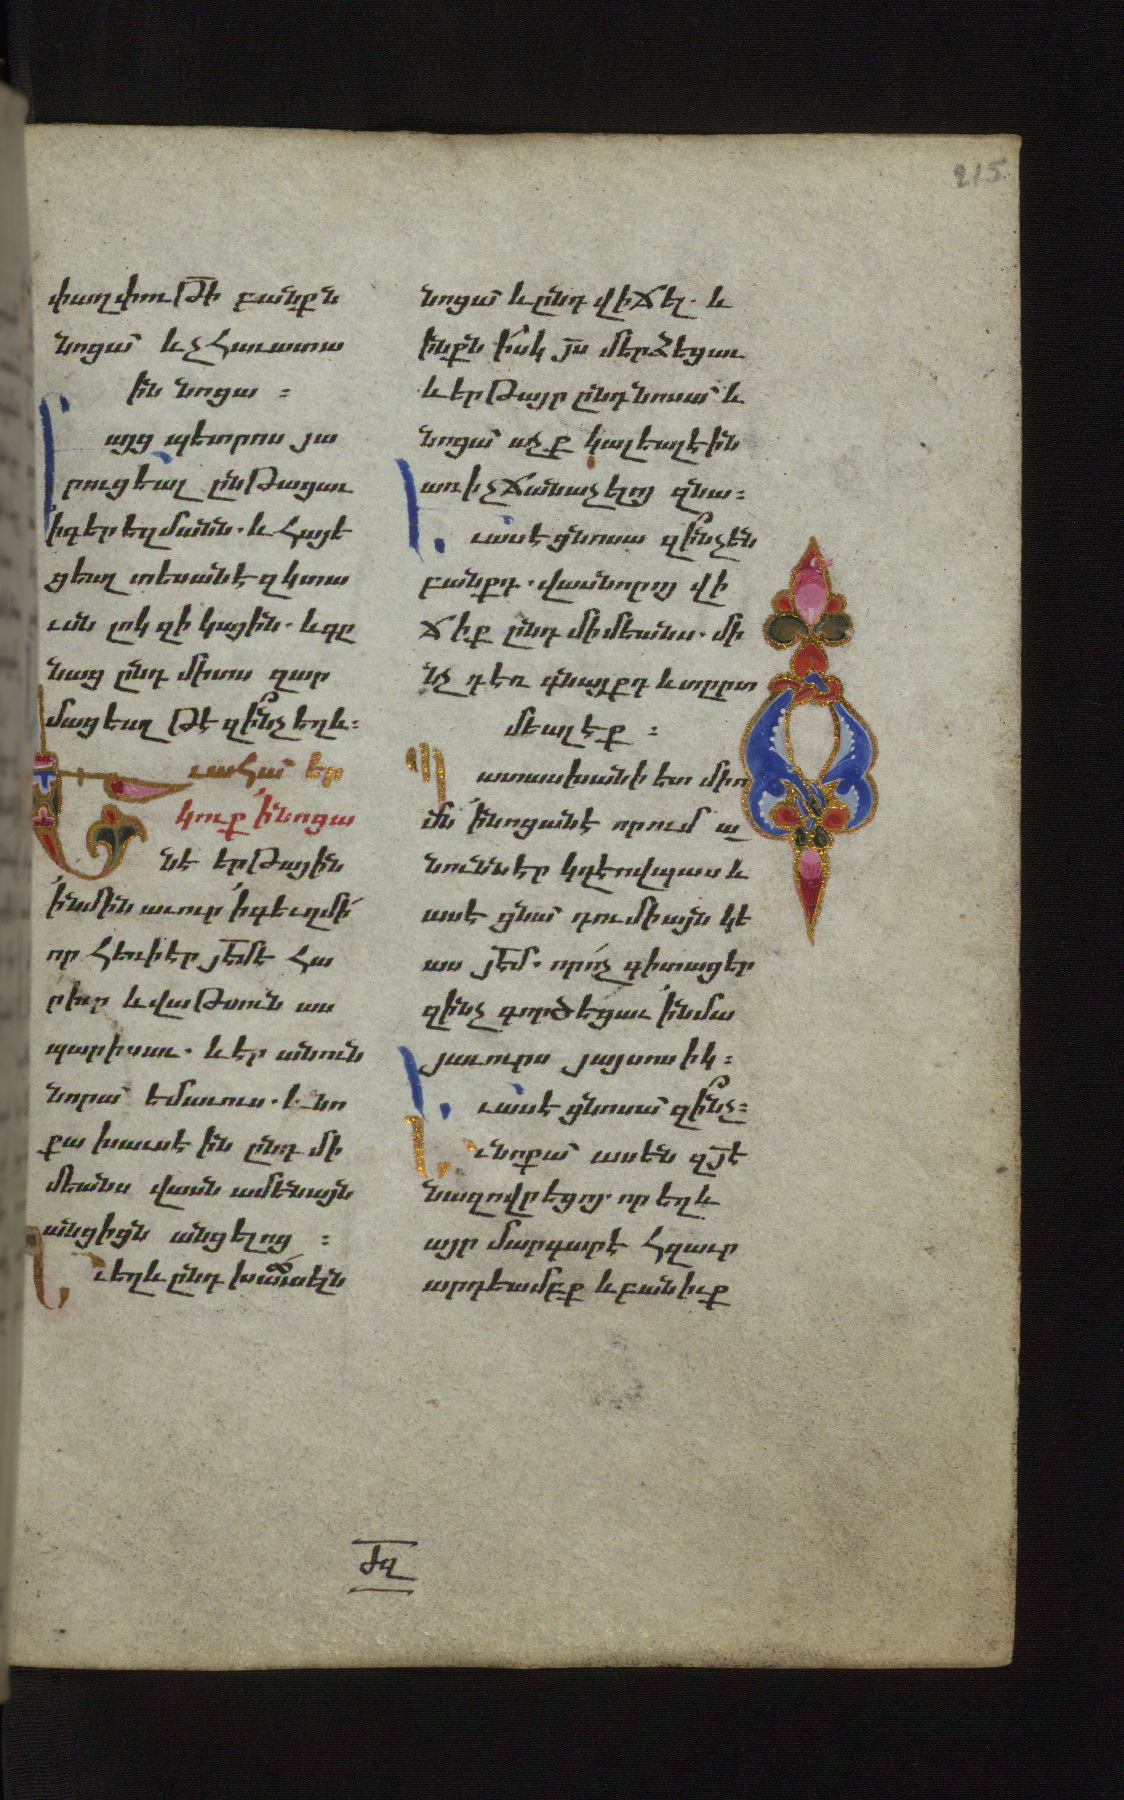 215
փաղփութի բանքն
նոցա՝ և չհաւատա
ին նոցա ։
Բայց պետրոս յա
րուցեալ ընթացաւ
ի գերեզմանն. և հայե
ցեալ տեսանէ զկտա
ւսն լոկ զի կային. և գը
նաց ընդ միտս զար
մացեալ թէ զի՞նչ եղև։
Եւ ահա՝ եր
կուք ՛ի նոցա
նէ երթային
՛ի նմին աւուր ՛ի գեւղ մի՛
որ հեռի էր յեմէ հա
րիւր և վաթսուն աս
պարիսաւ. և էր անուն
նորա՝ էմաւուս. և նո
քա խաւսէին ընդ մի
մեանս վասն ամենայն
անցիցն անցելոց ։
Եւ եղև ընդ խաւսելն
նոցա՝ և ընդ վիճել. և
ինքն իսկ յս մերձեցաւ
և երթայր ընդ նոսա՝ և
նոցա՝ աչք կալեալ էին
առ ի չճանաչելոյ զնա։
Եւ ասէ ցնոսա զի՞նչ են
բանքդ. վասն որոյ վի
ճիք ընդ միմեանս. մի
նչ դեռ գնայքդ և տըրտ
մեալ էք ։
Պատասխանի ետ միո
մն ՛ի նոցանէ որում ա
նունն էր կղէովպաս և
ասէ ցնա՝ դու միայն կե
աս յեմ. որ ոչ գիտացեր
զինչ գործեցաւ ՛ի նմա
յաւուրս յայսոսիկ։
Եւ ասէ ցնոսա՝ զի՞նչ։
Եւ նոքա՝ ասեն զյէ
նազովրեցոյ. որ եղև
այր մարգարէ հզաւր
արդեամբք և բանիւք
ժզ